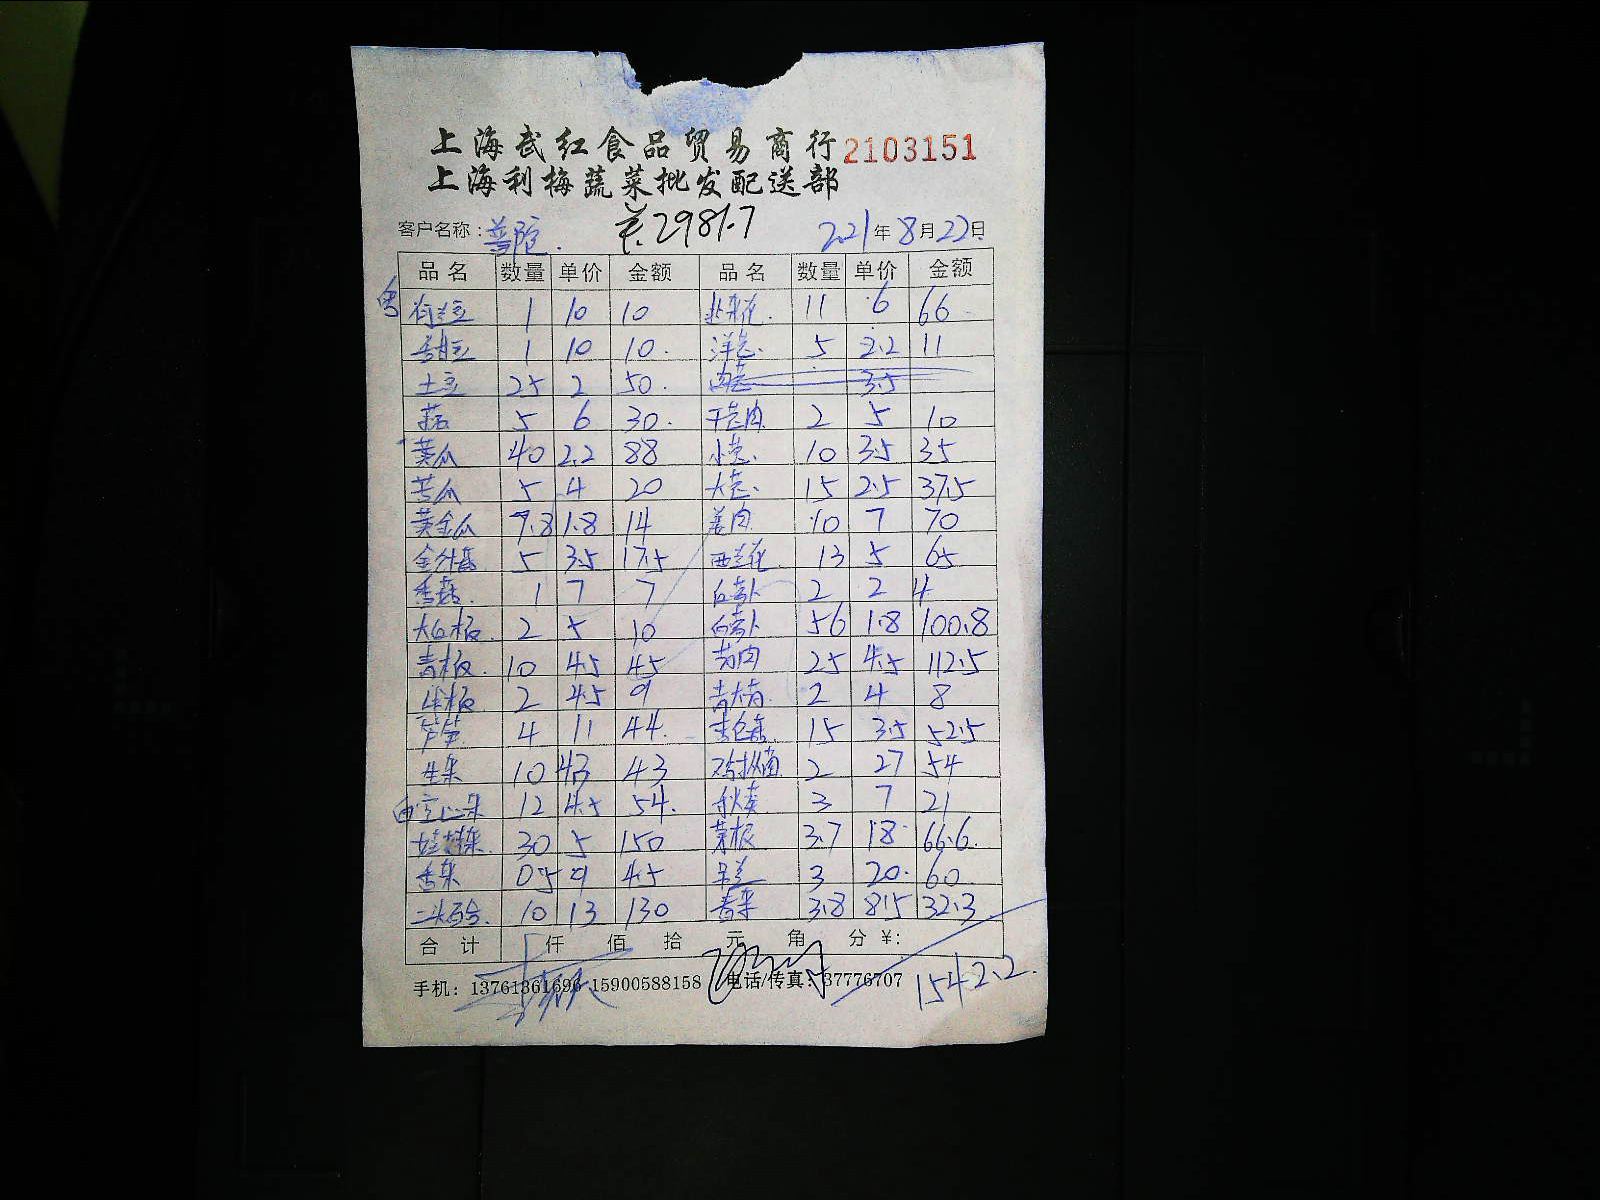 上海武红食品贸易商行 2103151
上海利梅蔬菜批发配送部
客户名称：普陀. 共2981.7 2021年8月22日
品名 数量 单价 金额 品名 数量 单价 金额
荷兰豆 1 10 10 11 6 66
1 10 10. 洋葱. 5 2.2 11
土豆 25 2 50. 3.5
5 6 30. 干葱肉 2 5 10
黄瓜 40 2.2 88 小葱. 10 3.5 35
苦瓜 5 4 20 大葱. 15 2.5 37.5
黄金瓜 7.8 1.8 14 姜肉 10 7 70
金针菇 5 3.5 17.5 西兰花 13 5 65
香菇. 1 7 7 红萝卜 2 2 4
大红椒. 2 5 10 白萝卜 56 1.8 100.8
青椒. 10 4.5 45 25 4.5 112.5
尖椒 2 4.5 9 2 4 8
芦笋. 4 11 44. 15 3.5 52.5
生菜 10 4.3 43 2 27 54
空心菜 12 4.5 54. 秋葵 3 7 21
娃娃菜. 30 5 150 茅根 3.7 18 66.6.
香菜 0.5 9 4.5 3 20. 60
10 13 130 3.8 8.5 32.3
合计 仟 佰 拾 元 角 分 ¥:
手机：13761361696 15900588158 电话/传真：37776707 1542.2.